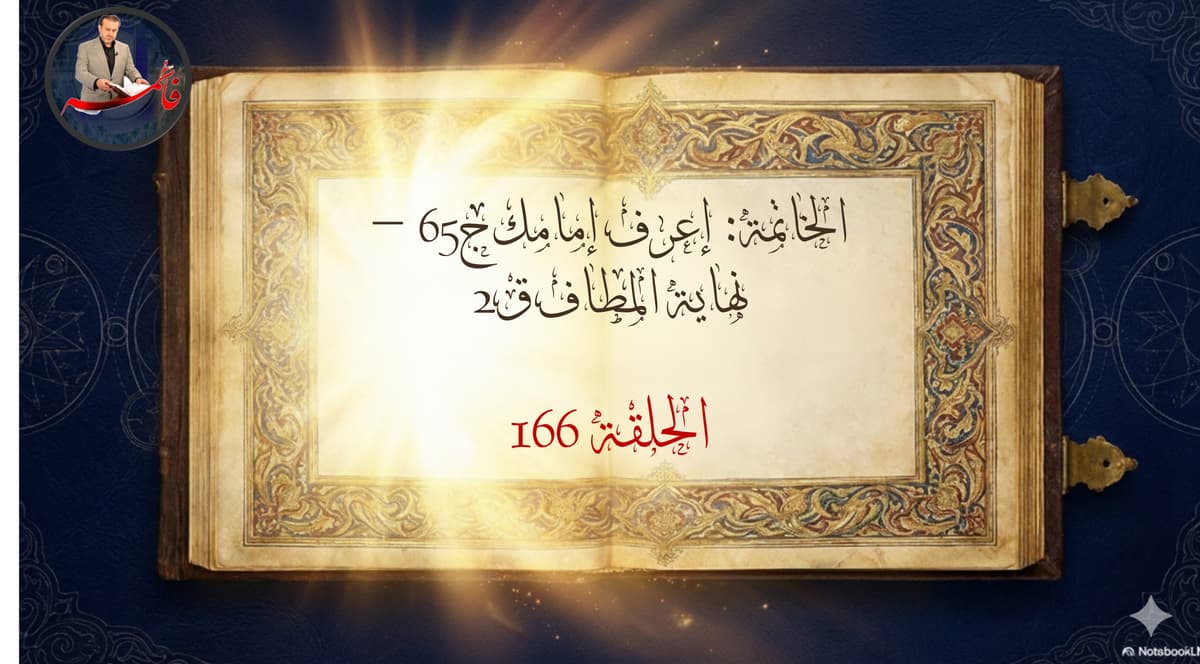 فاطمة
الخاتمة: إعرف إمامك ج65 –
نهاية المطاف ق2
الحلقة 166
NotsbookLM